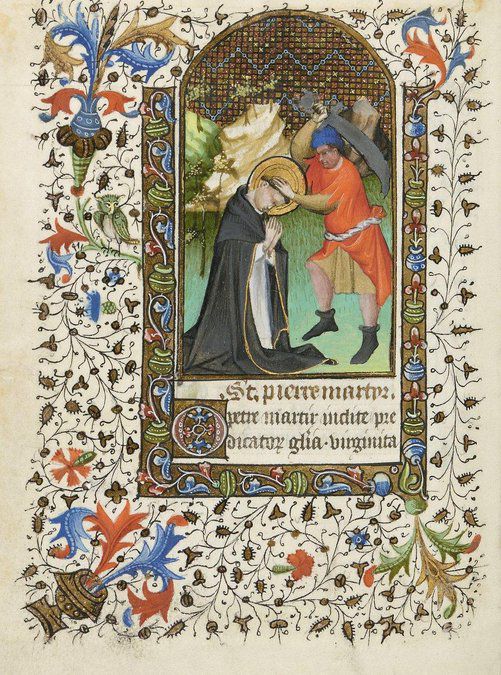 St. pierre martyr.
O petre martir inclite pre
dicatoꝝ glia. virginita